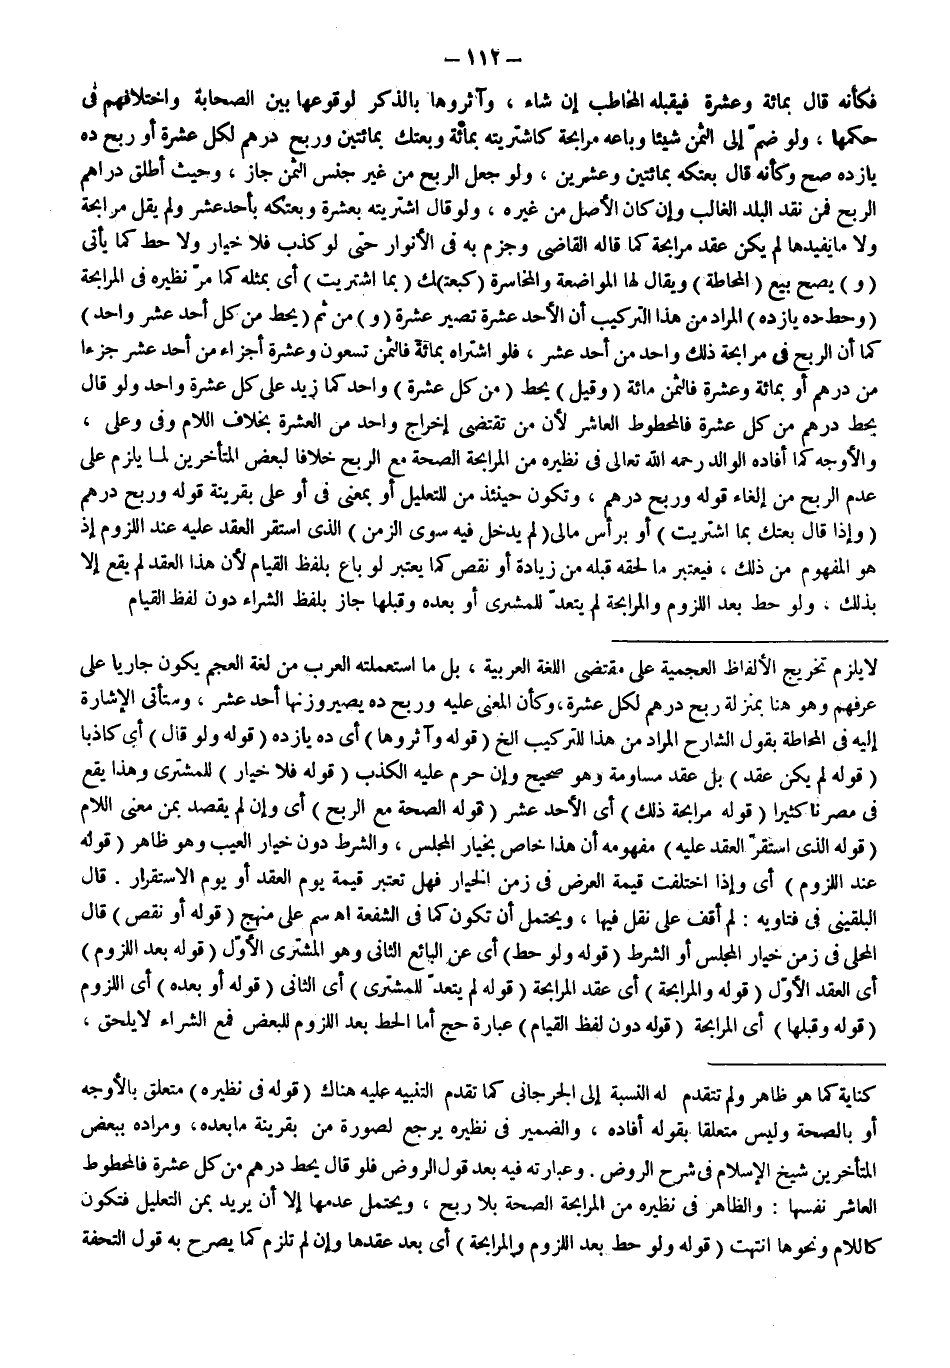 – ١١٢ –
فكأنه قال بمائة وعشرة فيقبله المخاطب إن شاء ، وآثروها بالذكر لوقوعها بين الصحابة واختلافهم فى
حكمها ، ولو ضمّ إلى الثمن شيئا وباعه مرابحة كاشتريته بمائة وبعتك بمائتين وربح درهم لكل عشرة أو ربح ده
يازده صح وكأنه قال بعتكه بمائتين وعشرين ، ولو جعل الربح من غير جنس الثمن جاز ، وحيث أطلق دراهم
الربح فمن نقد البلد الغالب وإن كان الأصل من غيره ، ولو قال اشتريته بعشرة وبعتكه بأحد عشر ولم يقل مرابحة
ولا ما يفيدها لم يكن عقد مرابحة كما قاله القاضى وجزم به فى الأنوار حتى لو كذب فلا خيار ولا حط كما يأتى
( و ) يصح بيع ( المحاطة ) ويقال لها المواضعة والمخاسرة ( كبعت)ك ( بما اشتريت ) أى بمثله كما مرّ نظيره فى المرابحة
( وحط ده يازده ) المراد من هذا التركيب أن الأحد عشرة تصير عشرة ( و ) من ثم ( يحط من كل أحد عشر واحد )
كما أن الربح فى مرابحة ذلك واحد من أحد عشر ، فلو اشتراه بمائة فالثمن تسعون وعشرة أجزاء من أحد عشر جزءا
من درهم أو بمائة وعشرة فالثمن مائة ( وقيل ) يحط ( من كل عشرة ) واحد كما زيد على كل عشرة واحد ولو قال
يحط درهم من كل عشرة فالمحطوط العاشر لأن من تقتضى إخراج واحد من العشرة بخلاف اللام وفى وعلى ،
والأوجه كما أفاده الوالد رحمه الله تعالى فى نظيره من المرابحة الصحة مع الربح خلافا لبعض المتأخرين لما يلزم على
عدم الربح من إلغاء قوله وربح درهم ، وتكون حينئذ من للتعليل أو بمعنى فى أو على بقرينة قوله وربح درهم
( وإذا قال بعتك بما اشتريت ) أو برأس مالى ( لم يدخل فيه سوى الزمن ) الذى استقر العقد عليه عند اللزوم إذ
هو المفهوم من ذلك ، فيعتبر ما لحقه قبله من زيادة أو نقص كما يعتبر لو باع بلفظ القيام لأن هذا العقد لم يقع إلا
بذلك ، ولو حط بعد اللزوم والمرابحة لم يتعدّ للمشترى أو بعده وقبلها جاز بلفظ الشراء دون لفظ القيام
لايلزم تخريج الألفاظ العجمية على مقتضى اللغة العربية ، بل ما استعملته العرب من لغة العجم يكون جاريا على
عرفهم وهو هنا بمنزلة ربح درهم لكل عشرة ، وكأن المعنى عليه وربح ده يصير وزنها أحد عشر ، وستأتى الإشارة
إليه فى المحاطة بقول الشارح المراد من هذا للتركيب الخ ( قوله وآثروها ) أى ده يازده ( قوله ولو قال ) أى كاذبا
( قوله لم يكن عقد ) بل عقد مساومة وهو صحيح وإن حرم عليه الكذب ( قوله فلا خيار ) للمشترى وهذا يقع
فى مصرنا كثيرا ( قوله مرابحة ذلك ) أى الأحد عشر ( قوله الصحة مع الربح ) أى وإن لم يقصد بمن معنى اللام
( قوله الذى استقرّ العقد عليه ) مفهومه أن هذا خاص بخيار المجلس ، والشرط دون خيار العيب وهو ظاهر ( قوله
عند اللزوم ) أى وإذا اختلفت قيمة العرض فى زمن الخيار فهل تعتبر قيمة يوم العقد أو يوم الاستقرار . قال
البلقينى فى فتاويه : لم أقف على نقل فيها ، ويحتمل أن تكون كما فى الشفعة اه سم على منهج ( قوله أو نقص ) قال
المحلى فى زمن خيار المجلس أو الشرط ( قوله ولو حط ) أى عن البائع الثانى وهو المشترى الأوّل ( قوله بعد اللزوم )
أى العقد الأوّل ( قوله والمرابحة ) أى عقد المرابحة ( قوله لم يتعدّ للمشترى ) أى الثانى ( قوله أو بعده ) أى اللزوم
( قوله وقبلها ) أى المرابحة ( قوله دون لفظ القيام ) عبارة حج أما الحط بعد اللزوم للبعض فمع الشراء لايلحق ،
كناية كما هو ظاهر ولم تتقدم له النسبة إلى الجرجانى كما تقدم التنبيه عليه هناك ( قوله فى نظيره ) متعلق بالأوجه
أو بالصحة وليس متعلقا بقوله أفاده ، والضمير فى نظيره يرجع لصورة من بقرينة مابعده ، ومراده ببعض
المتأخرين شيخ الإسلام فى شرح الروض . وعبارته فيه بعد قول الروض فلو قال يحط درهم من كل عشرة فالمحطوط
العاشر نفسها : والظاهر فى نظيره من المرابحة الصحة بلا ربح ، ويحتمل عدمها إلا أن يريد بمن التعليل فتكون
كاللام ونحوها انتهت ( قوله ولو حط بعد اللزوم والمرابحة ) أى بعد عقدها وإن لم تلزم كما يصرح به قول التحفة